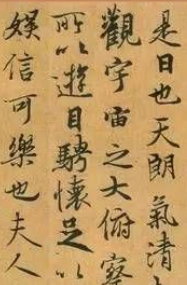 是日也天朗氣清
觀宇宙之大俯察
所以遊目騁懷足以
娱信可樂也夫人